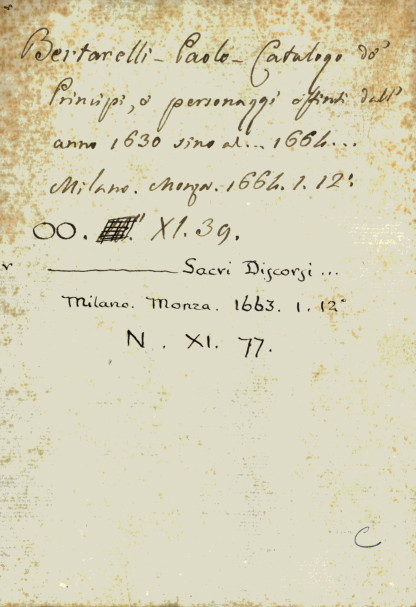 Bertarelli - Paolo - Catalogo de'
Principi, o personaggi estinti dall'
anno 1630 sino al... 1664...
Milano. Monza. 1664. 1. 12°.
OO. XI. 39.
Sacri Discorsi ...
Milano. Monza. 1663. 1. 12°
N. XI. 77.
C